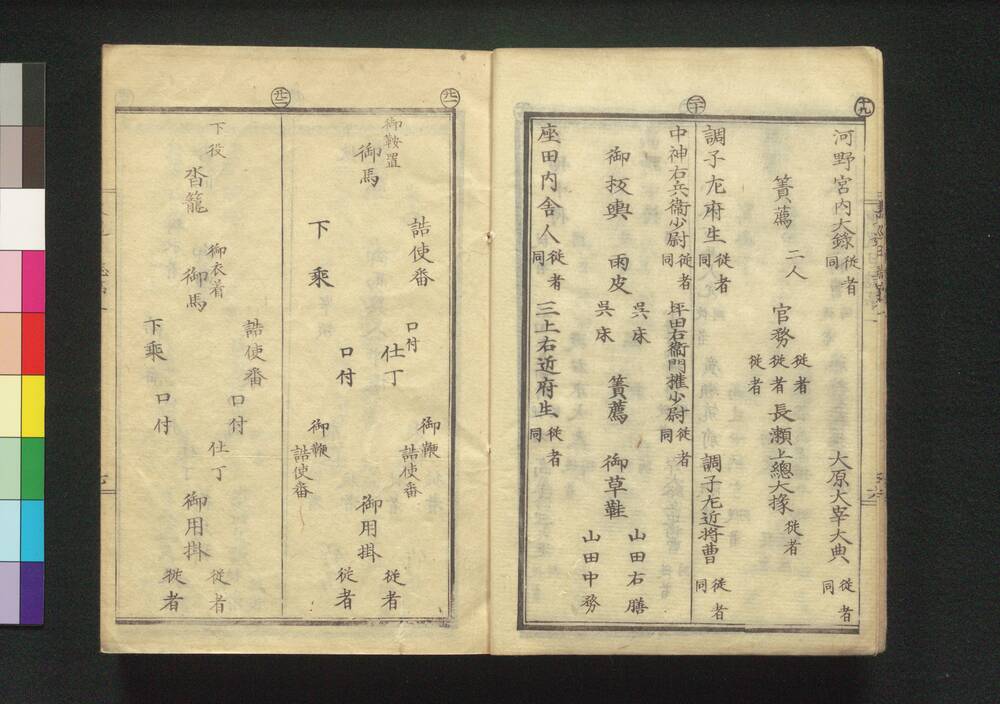 十九
河野宮内大録 徒者 同
大原大宰大典 徒者 同
簀薦 二人
官務 徒者 徒者 徒者
長瀬上總大掾 徒者
二十
調子左府生 徒者 同
調子左近将曹 徒者 同
中神右兵衞少尉 徒者 同
坪田右衞門權少尉 徒者 同
御板輿 雨皮
呉床
呉床
簀薦
御草鞋
山田右膳
山田中務
座田内舎人 徒者 同
三上右近府生 徒者 同
廿一
御鞍置
御馬
詰使番
口付
仕丁
御鞭
詰使番
御用掛
徒者
徒者
下乘
口付
詰使番
廿二
下役
沓籠
御衣着
御馬
詰使番
口付
仕丁
御用掛
徒者
徒者
下乘
口付